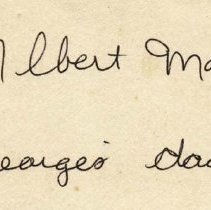 Albert Ma
eorges dau